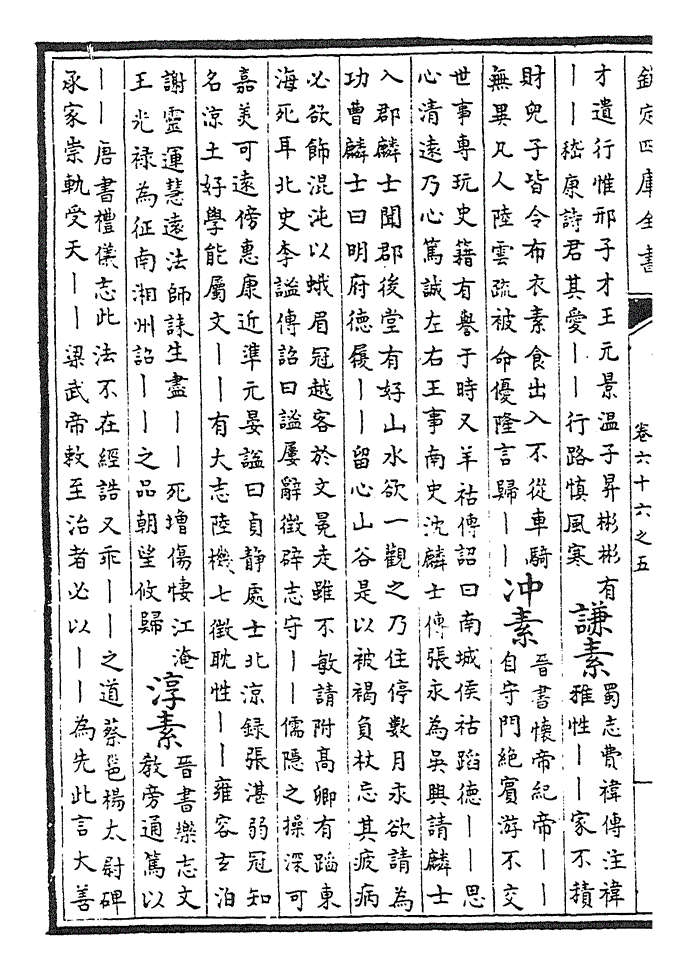 欽定四庫全書
卷六十六之五
才遺行惟邢子才王元景温子昇彬彬有
——嵇康詩君其愛——行路慎風寒
謙素
蜀志費禕傳注禕
雅性——家不積
財兒子皆令布衣素食出入不從車騎
無異凡人陸雲疏被命優隆言歸——
冲素
晉書懷帝紀帝——
自守門絶賓游不交
世事專玩史籍有譽于時又羊祜傳詔曰南城侯祜蹈德——思
心清遠乃心篤誠左右王事南史沈麟士傳張永為吳興請麟士
入郡麟士聞郡後堂有好山水欲一觀之乃住停數月永欲請為
功曹麟士曰明府德履——留心山谷是以被褐負杖忘其疲病
必欲飾混沌以蛾眉冠越客於文冕走雖不敏請附高卿有蹈東
海死耳北史李謐傳詔曰謐屢辭徵辟志守——儒隱之操深可
嘉美可遠傍惠康近準元晏謚曰貞靜處士北涼録張湛弱冠知
名涼土好學能屬文——有大志陸機七徵耽性——雍容玄泊
謝靈運慧遠法師誄生盡——死増傷悽江淹
王光禄為征南湘州詔——之品朝望攸歸
淳素
晉書樂志文
教旁通篤以
——唐書禮儀志此法不在經誥又乖——之道蔡邕楊太尉碑
承家崇軌受天——梁武帝敕至治者必以——為先此言大善